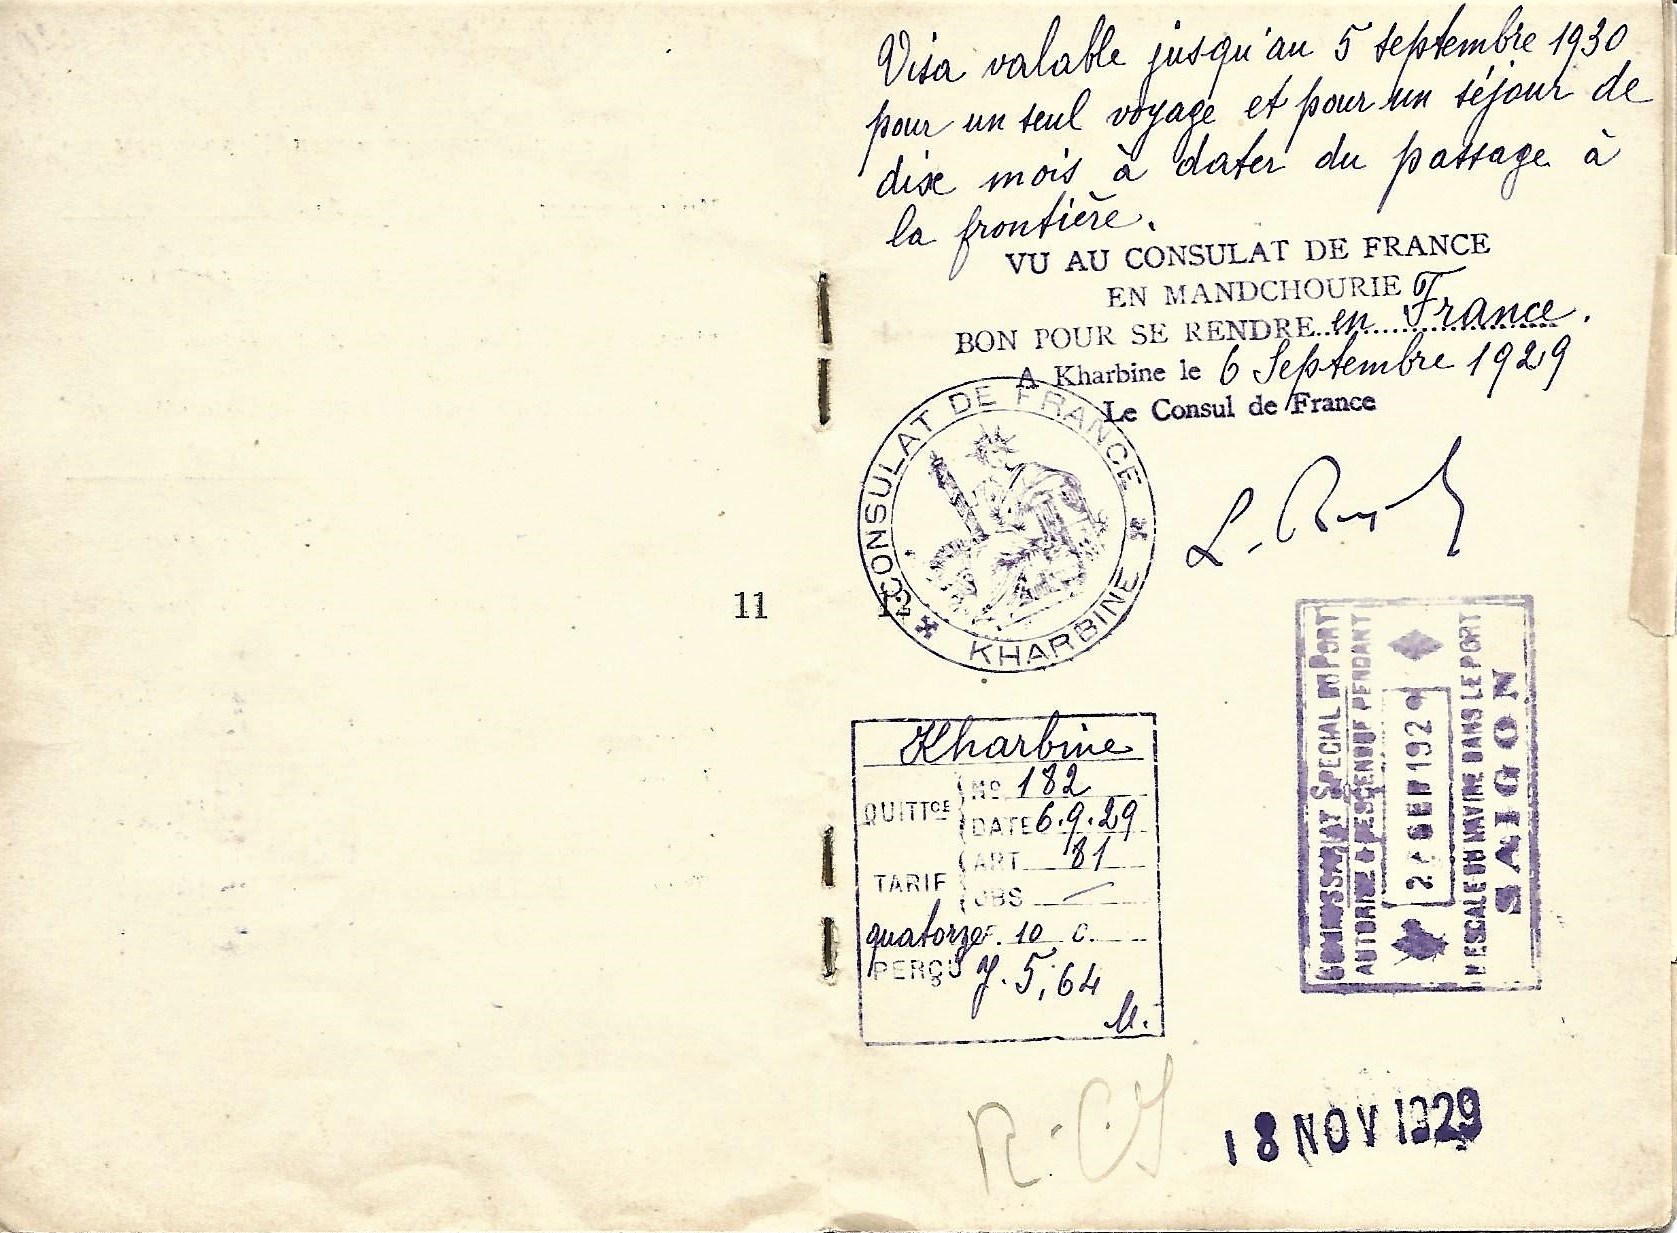 Visa valable jusqu'au 5 septembre 1930
pour un seul voyage et pour un séjour de
dix mois à dater du passage à
la frontière.
VU AU CONSULAT DE FRANCE
EN MANDCHOURIE
BON POUR SE RENDRE en France.
A Kharbine le 6 Septembre 1929
Le Consul de France
CONSULAT DE FRANCE
KHARBINE
11
12
Kharbine
QUITTCE
No 182
DATE 6.9.29
TARIF
ART 81
OBS
quatorze F. 10 C.
PERÇU
5,64
COMMISSARIAT SPECIAL DU PORT
AUTORISE A DESCENDRE PENDANT
SEP 1929
L'ESCALE DU NAVIRE DANS LE PORT
SAIGON
18 NOV 1929